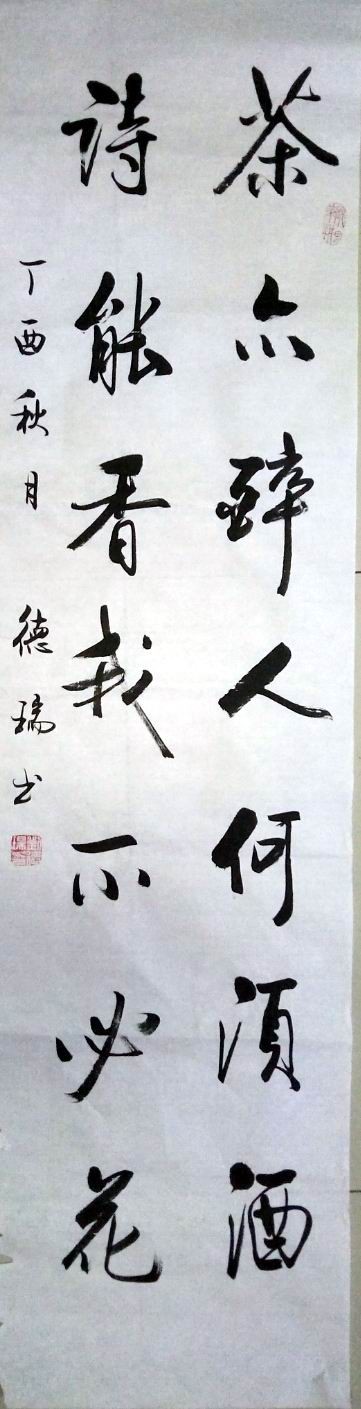 茶亦醉人何须酒
詩能香我不必花
丁酉秋月 德瑞书